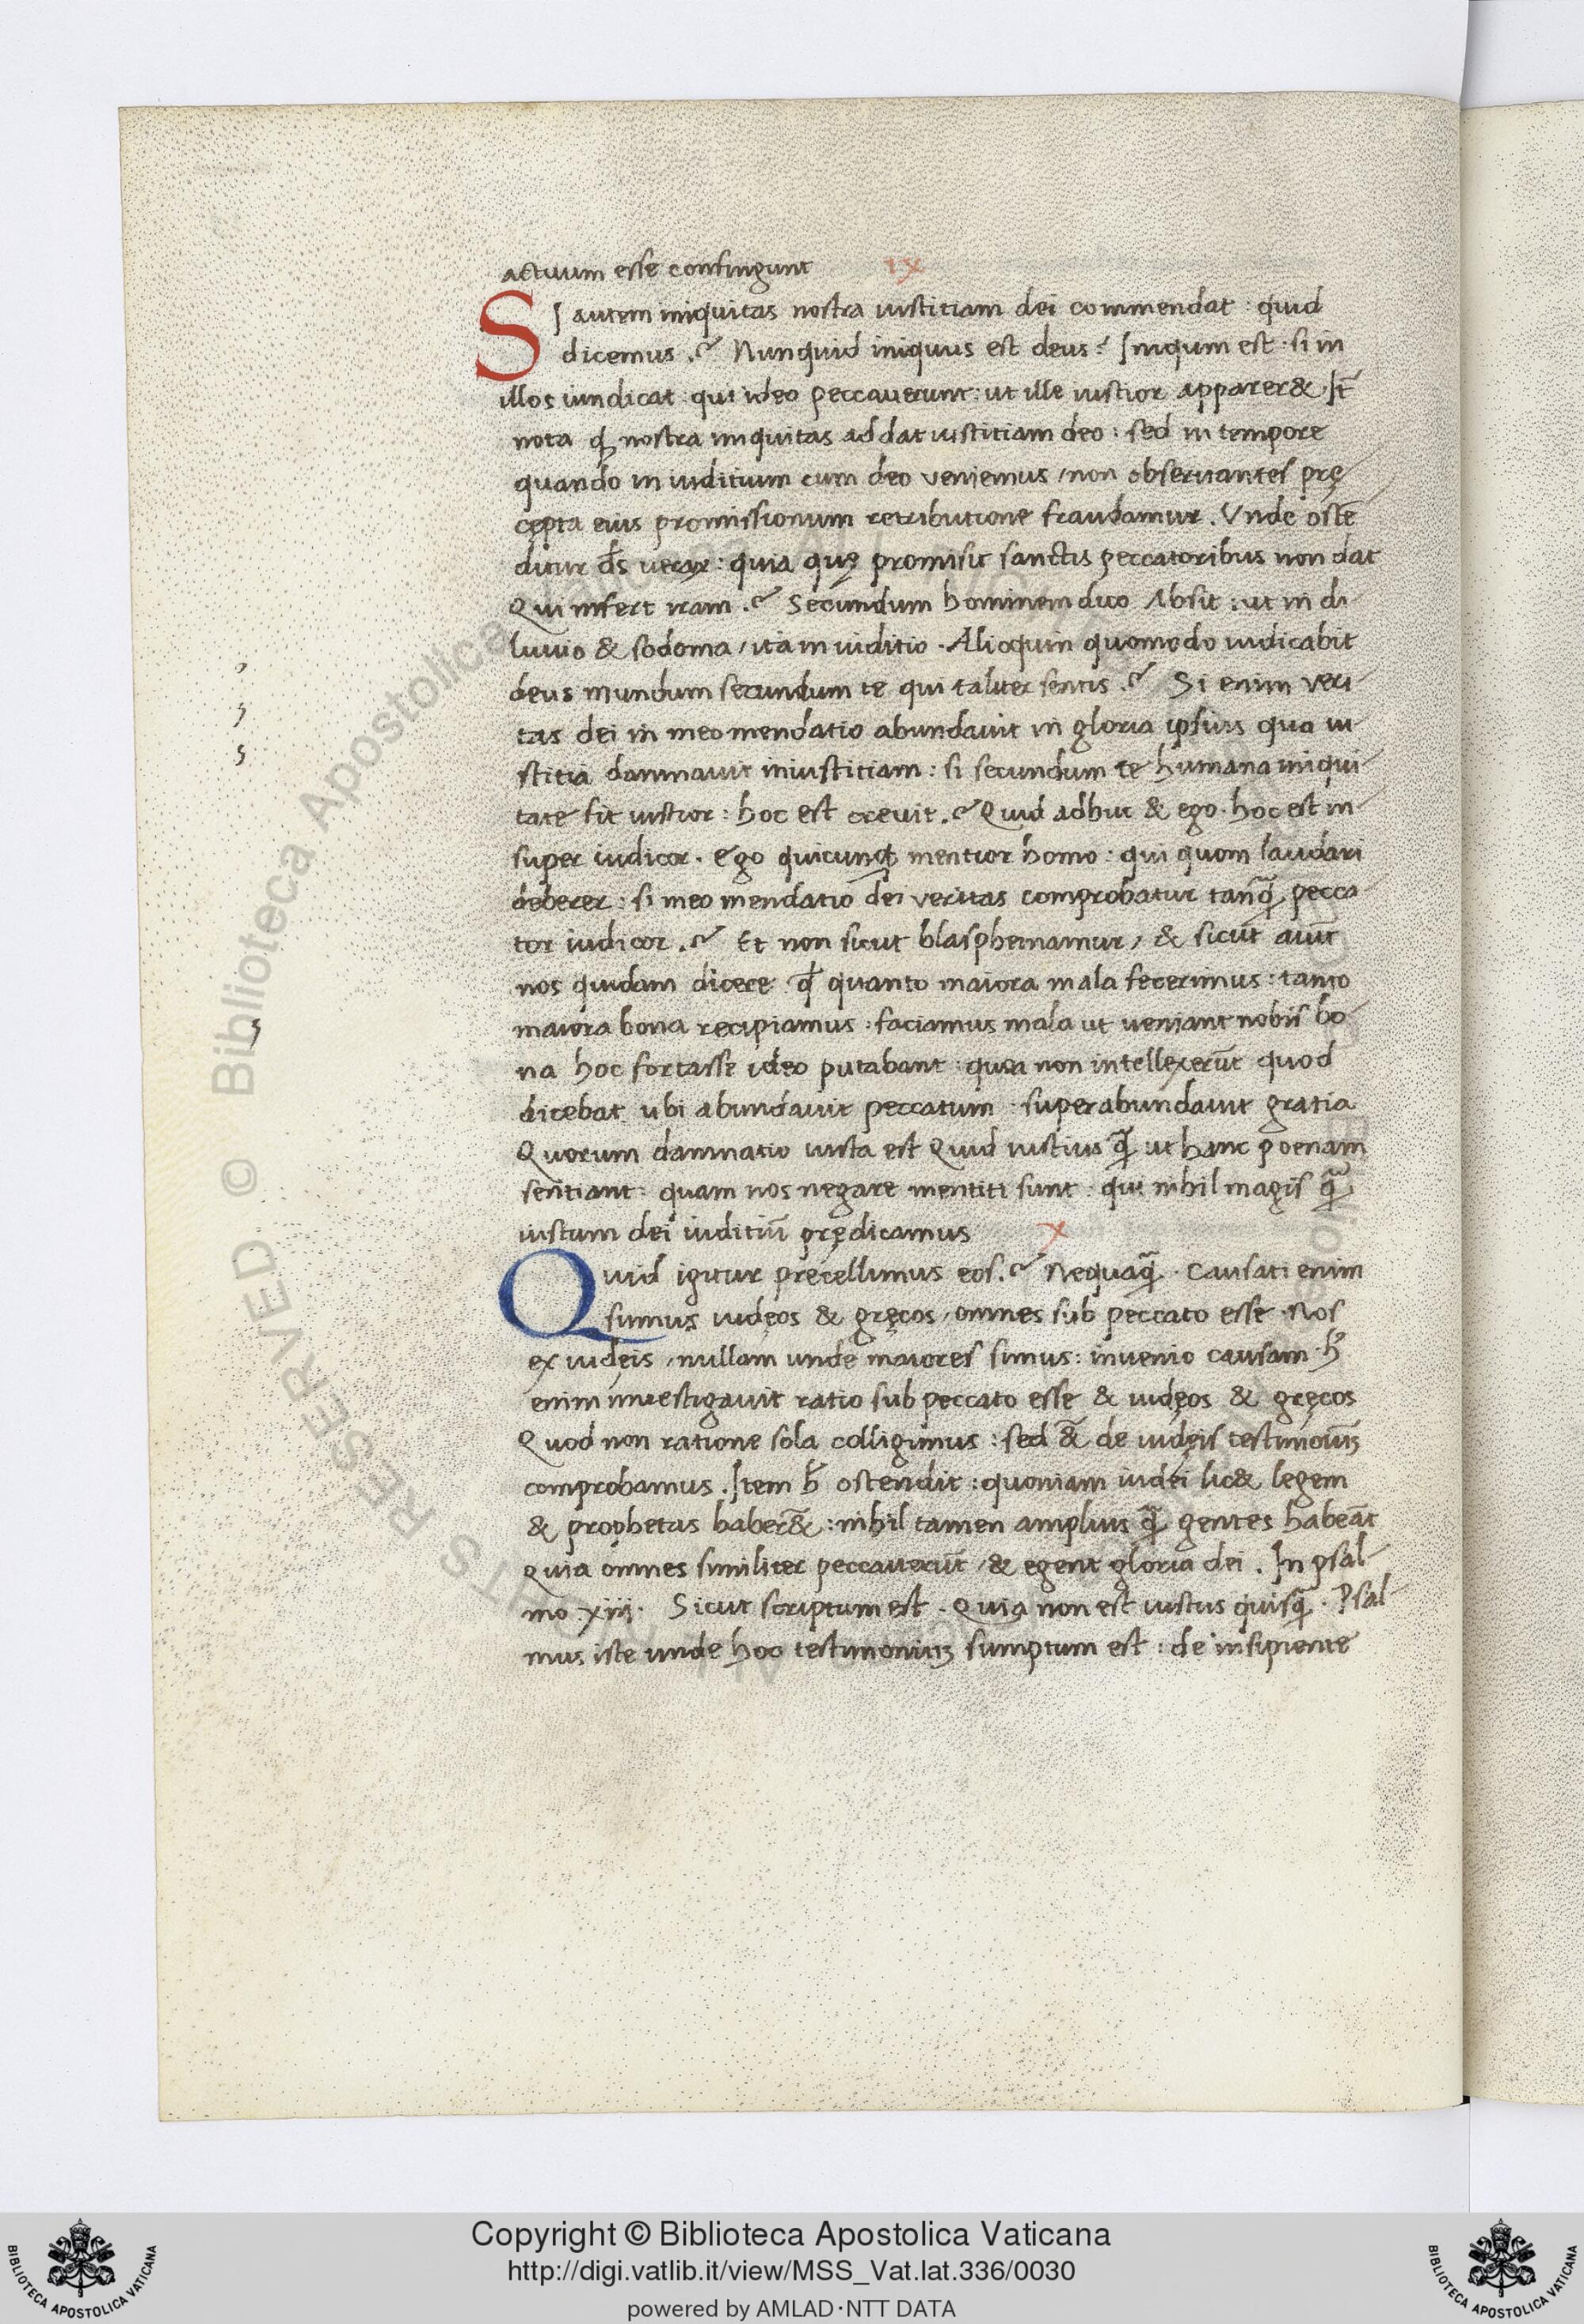 actuum esse confingunt IX
SI autem iniquitas nostra iustitiam dei commendat : quid
dicemus .? Nunquid iniquus est deus ? Iniqum est · si in
illos iundicat : qui ideo peccauerunt : ut ille iustior apparer& . It̃
nota ꝙ nostra iniquitas addat iustitiam deo : sed in tempore
quando in iuditium cum deo veniemus / non obseruantes prę
cępta eius promissionum retributione fraudamur . Vnde ostē
ditur d̄s uerax : quia quę promisit sanctis peccatoribus non dat
Qui infert iram .? Secundum hominem dico Absit : ut in di-
luuio & sodoma / ita in iuditio . Alioquin quomodo iudicabit
deus mundum secundum te qui taliter sentis .? Si enim veri-
tas dei in meo mendatio abundauit in gloria ipsius qua iu-
stitia damnauit iniustitiam : si secundum te humana iniqui-
tate fit iustior : hoc est creuit .? Quid adhuc & ego · hoc est in-
super iudicor . Ego quicunqꝫ mentior homo : qui quom laudari
deberer : si meo mendatio dei veritas comprobatur tanꝗ̃ pecca-
tor iudicor .? Et non sicut blasphemamur / & sicut aiūt
nos quidam dicere ꝙ quanto maiora mala fecerimus : tanto
maiora bona recipiamus : faciamus mala ut ueniant nobis bo-
na hoc fortasse ideo putabant : quia non intellexerūt quod
dicebat ubi abundauit peccatum · superabundauit gratia
Quorum damnatio iusta est Quid iustius ꝗ̃ ut hanc poenam
sentiant : quam nos negare mentiti sunt : qui nihil magis ꝗ̃
iustum dei iuditiū prędicamus X
Quid igitur precellimus eos .? Nequaꝗ̃ . Causati enim
sumus iudęos & gręcos / omnes sub peccato esse . Nos
ex iudęis / nullam unde maiores simus : inuenio causam · h̄
enim inuestigauit ratio sub peccato esse & iudęos & gręcos
Quod non ratione sola colligimus : sed &̃ de iudęis testimoniuꝫ
comprobamus . Item h̄ ostendit : quoniam iudei lic& legem
& prophetas haber&̃ : nihil tamen amplius ꝗ̃ gentes habeāt
quia omnes similiter peccauerūt / & egent gloria dei . In psal-
mo . xiij . Sicut scriptum est . Quia non est iustus quisꝗ̃ . Psal-
mus iste unde hoc testimoniuꝫ sumptum est : de insipiente
Copyright © Biblioteca Apostolica Vaticana
http://digi.vatlib.it/view/MSS_Vat.lat.336/0030
powered by AMLAD·NTT DATA